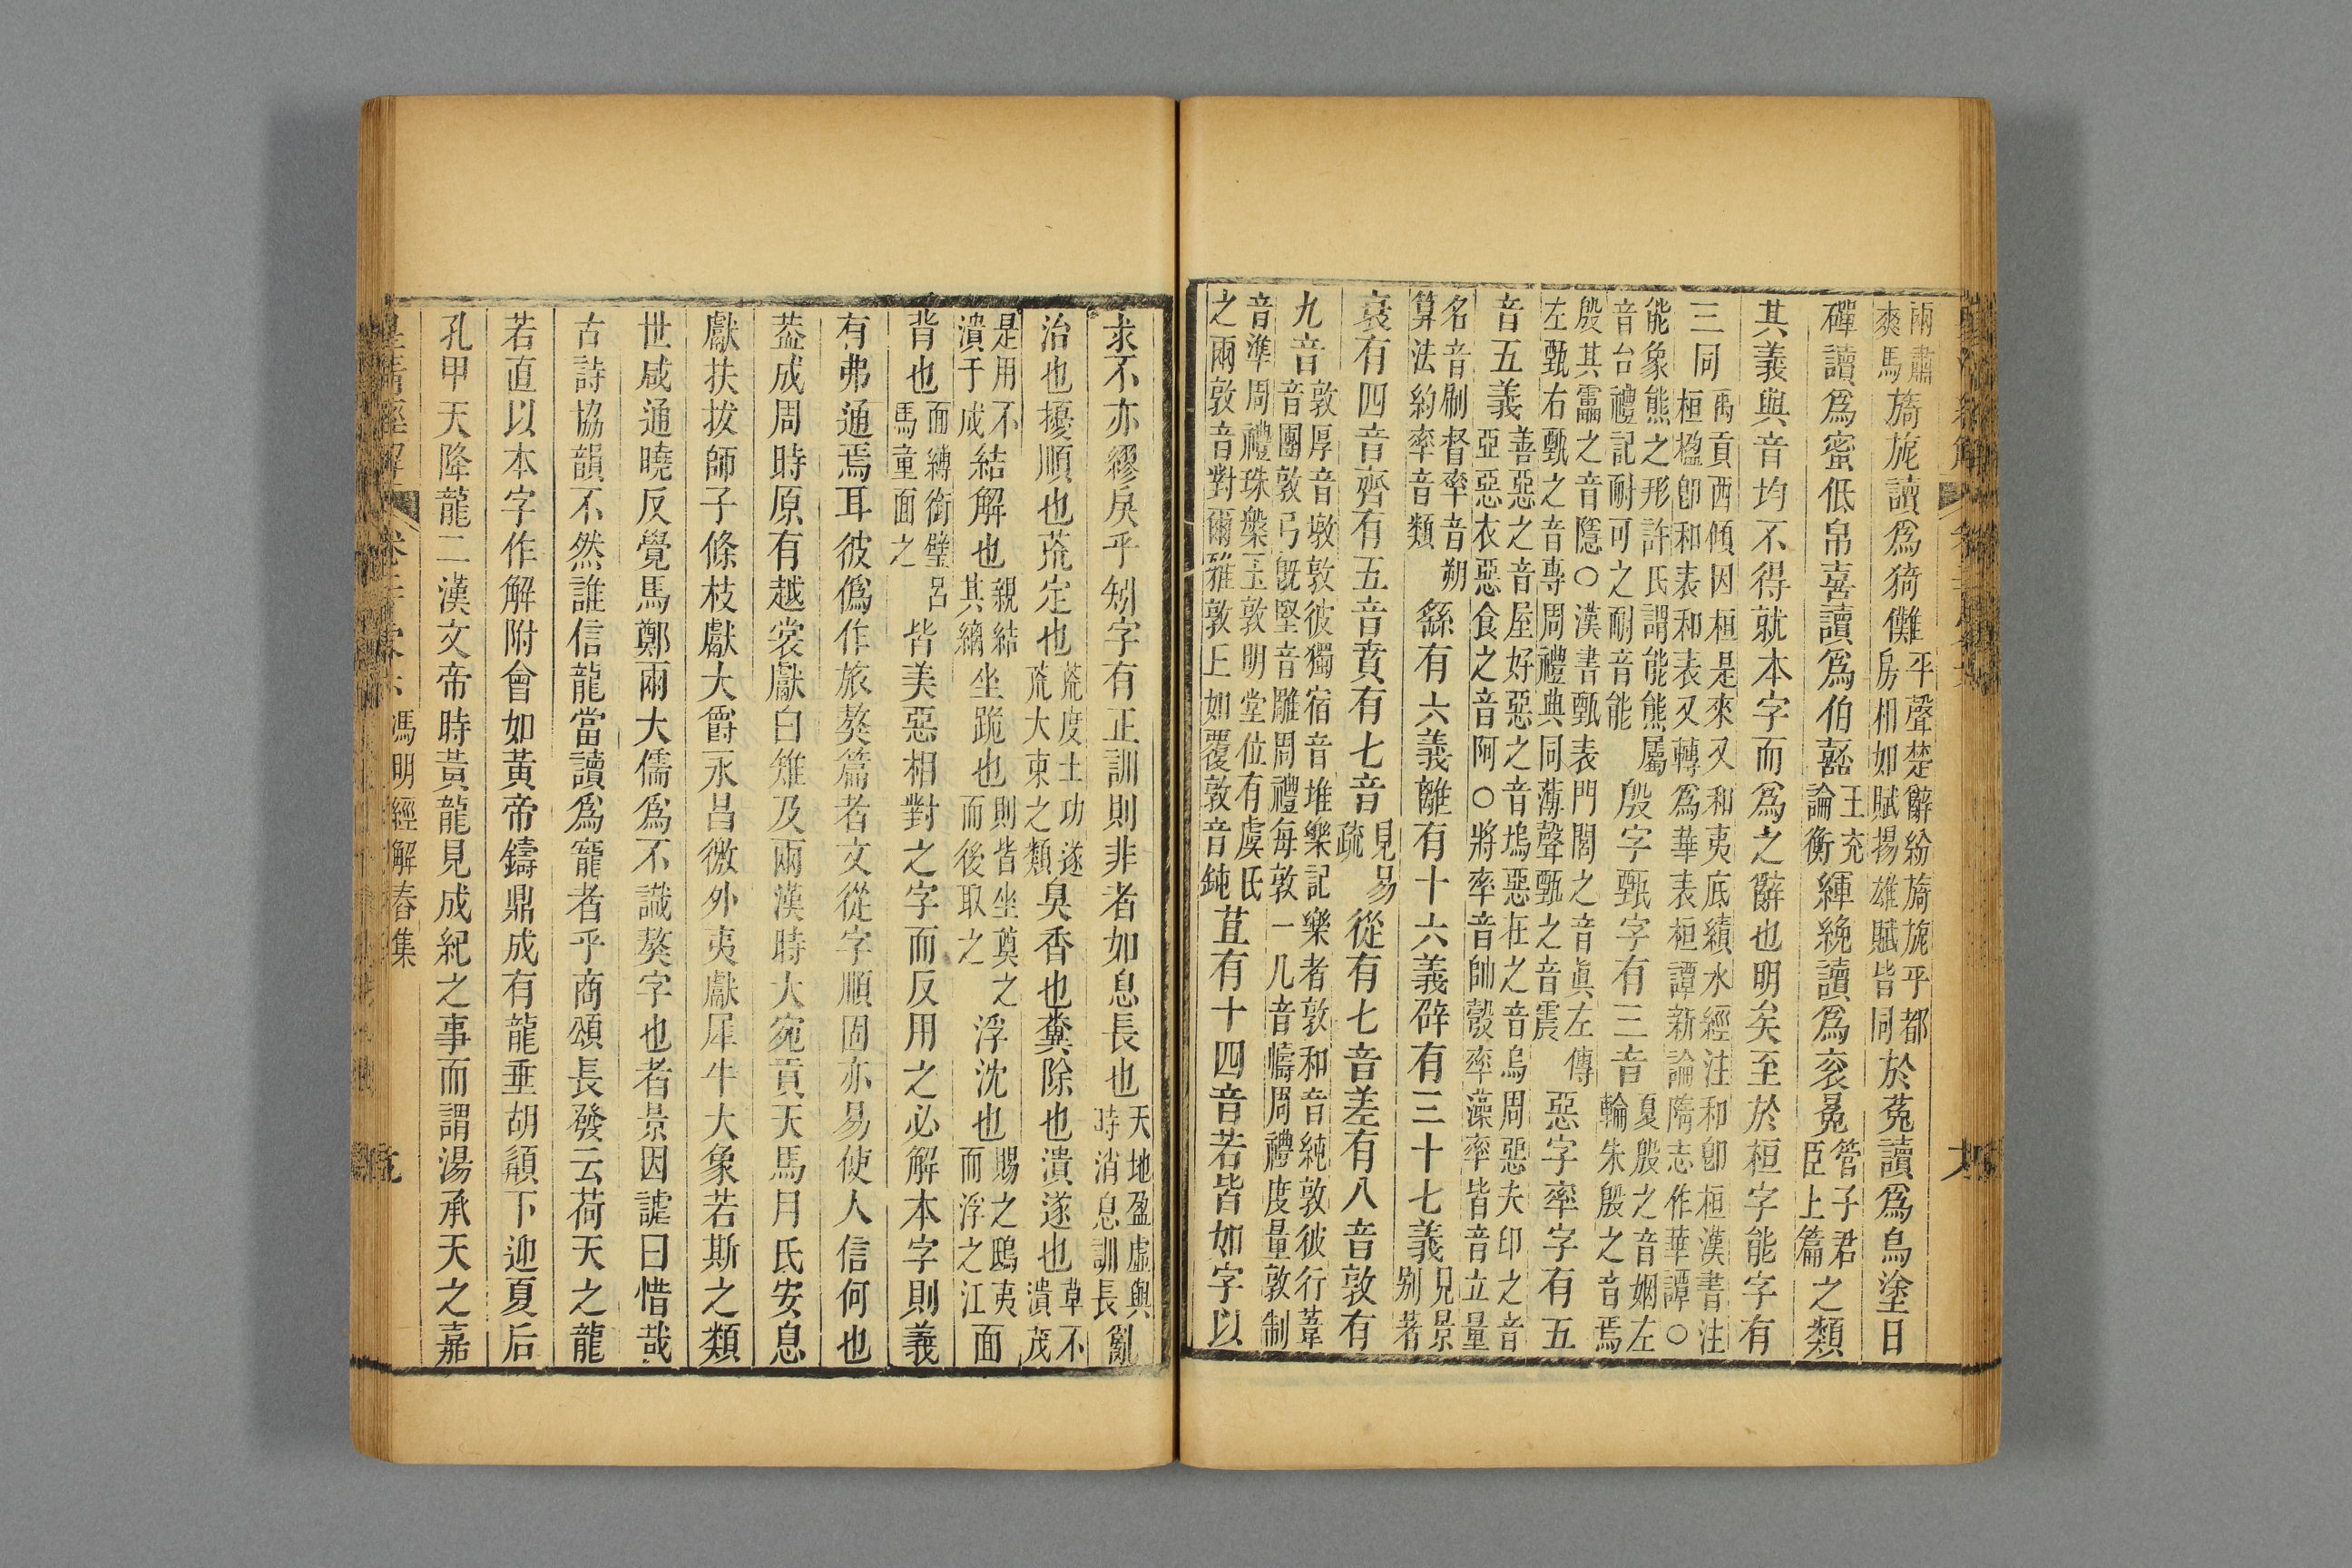 兩驌爽馬旖旎讀爲猗儺平聲楚辭紛旖旎乎都房相如賦揚雄賦皆同於菟讀爲烏塗日
磾讀爲蜜低帛喜讀爲伯嚭王充論衡緷絻讀爲袞冕管子君臣上篇之類
其義與音均不得就本字而爲之辭也明矣至於桓字能字有
三同禹貢西傾因桓是來又和夷底績水經注和卽桓漢書注桓楹卽和表和表又轉爲華表桓譚新論隋志作華譚○
能象熊之形許氏謂能熊屬音台禮記耐可之耐音能殷字甄字有三音夏殷之殷之音婣左輪朱殷之音焉
殷其靁之音隱○漢書甄表門閭之音眞左傳左甄右甄之音專周禮典同薄聲甄之音震惡字率字有五
音五義善惡之音屋好惡之音塢惡在之音烏周惡夫印之音亞惡惡衣惡食之音阿○將率音帥彀率藻率皆音立量
名音刷督率音朔算法約率音類繇有六義離有十六義辟有三十七義兄景別著
衰有四音齊有五音賁有七音見易疏從有七音差有八音敦有
九音敦厚音敦敦彼獨宿音堆樂記樂者敦和音純敦彼行葦音團敦弓旣堅音雕周禮每敦一几音幬周禮度量敦制
音準周禮珠槃玉敦明堂位有虞氏之兩敦音對爾雅敦丘如覆敦音鈍苴有十四音若皆如字以
求不亦繆戾乎矧字有正訓則非者如息長也天地盈虛與時消息訓長亂
治也擾順也荒定也荒度土功遂荒大東之類臭香也糞除也潰遂也草不潰茂
是用不潰于成結解也親結其縭坐跪也則皆坐奠之而後取之浮沈也賜之鴟夷而浮之江面
背也面縛銜璧馬童面之呂皆美惡相對之字而反用之必解本字則義
有弗通焉耳彼僞作旅獒篇者文從字順固亦易使人信何也
葢成周時原有越裳獻白雉及兩漢時大宛貢天馬月氏安息
獻扶拔師子條枝獻大爵永昌徼外夷獻犀牛大象若斯之類
世咸通曉反覺馬鄭兩大儒爲不識獒字也者景因謔曰惜哉
古詩協韻不然誰信龍當讀爲寵者乎商頌長發云荷天之龍
若直以本字作解附會如黃帝鑄鼎成有龍垂胡䫇下迎夏后
孔甲天降龍二漢文帝時黃龍見成紀之事而謂湯承天之嘉
皇清經解 馮明經解舂集